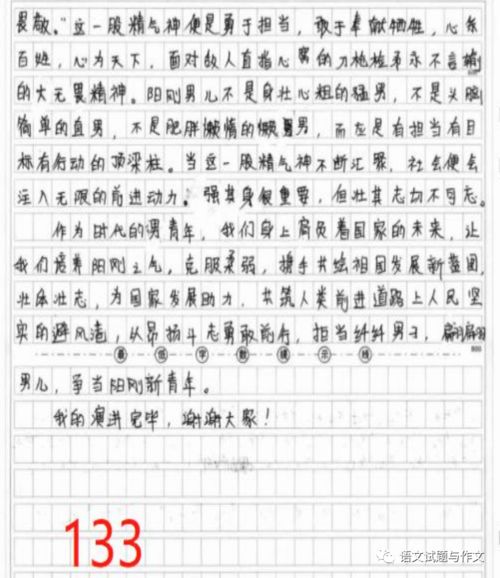 畏敬。”这一股精气神便是勇于担当，敢于奉献牺牲，心系
百姓，心为天下，面对敌人直指心窝的刀枪棍弟永不言输
的大无畏精神。阳刚男儿不是身壮心粗的猛男，不是头脑
简单的直男，不是肥胖懒惰的懒男，而应是有担当有目
标有行动的顶梁柱。当这一股精气神不断汇聚，社会便会
注入无限的前进动力。强其身很重要，但壮其志切不可忘。
作为时代的男青年，我们身上肩负着国家的未来，让
我们培养阳刚之气，克服柔弱，携手共绘祖国发展新蓝图，
壮体壮志，为国家发展助力，共筑人类前进道路上人民坚
实的避风港，以昂扬斗志勇敢前行，拒当纤纤男子，翩翩
800
最低字数提示线
男儿，争当阳刚新青年。
我的演讲完毕，谢谢大家！
133
语文试题与作文